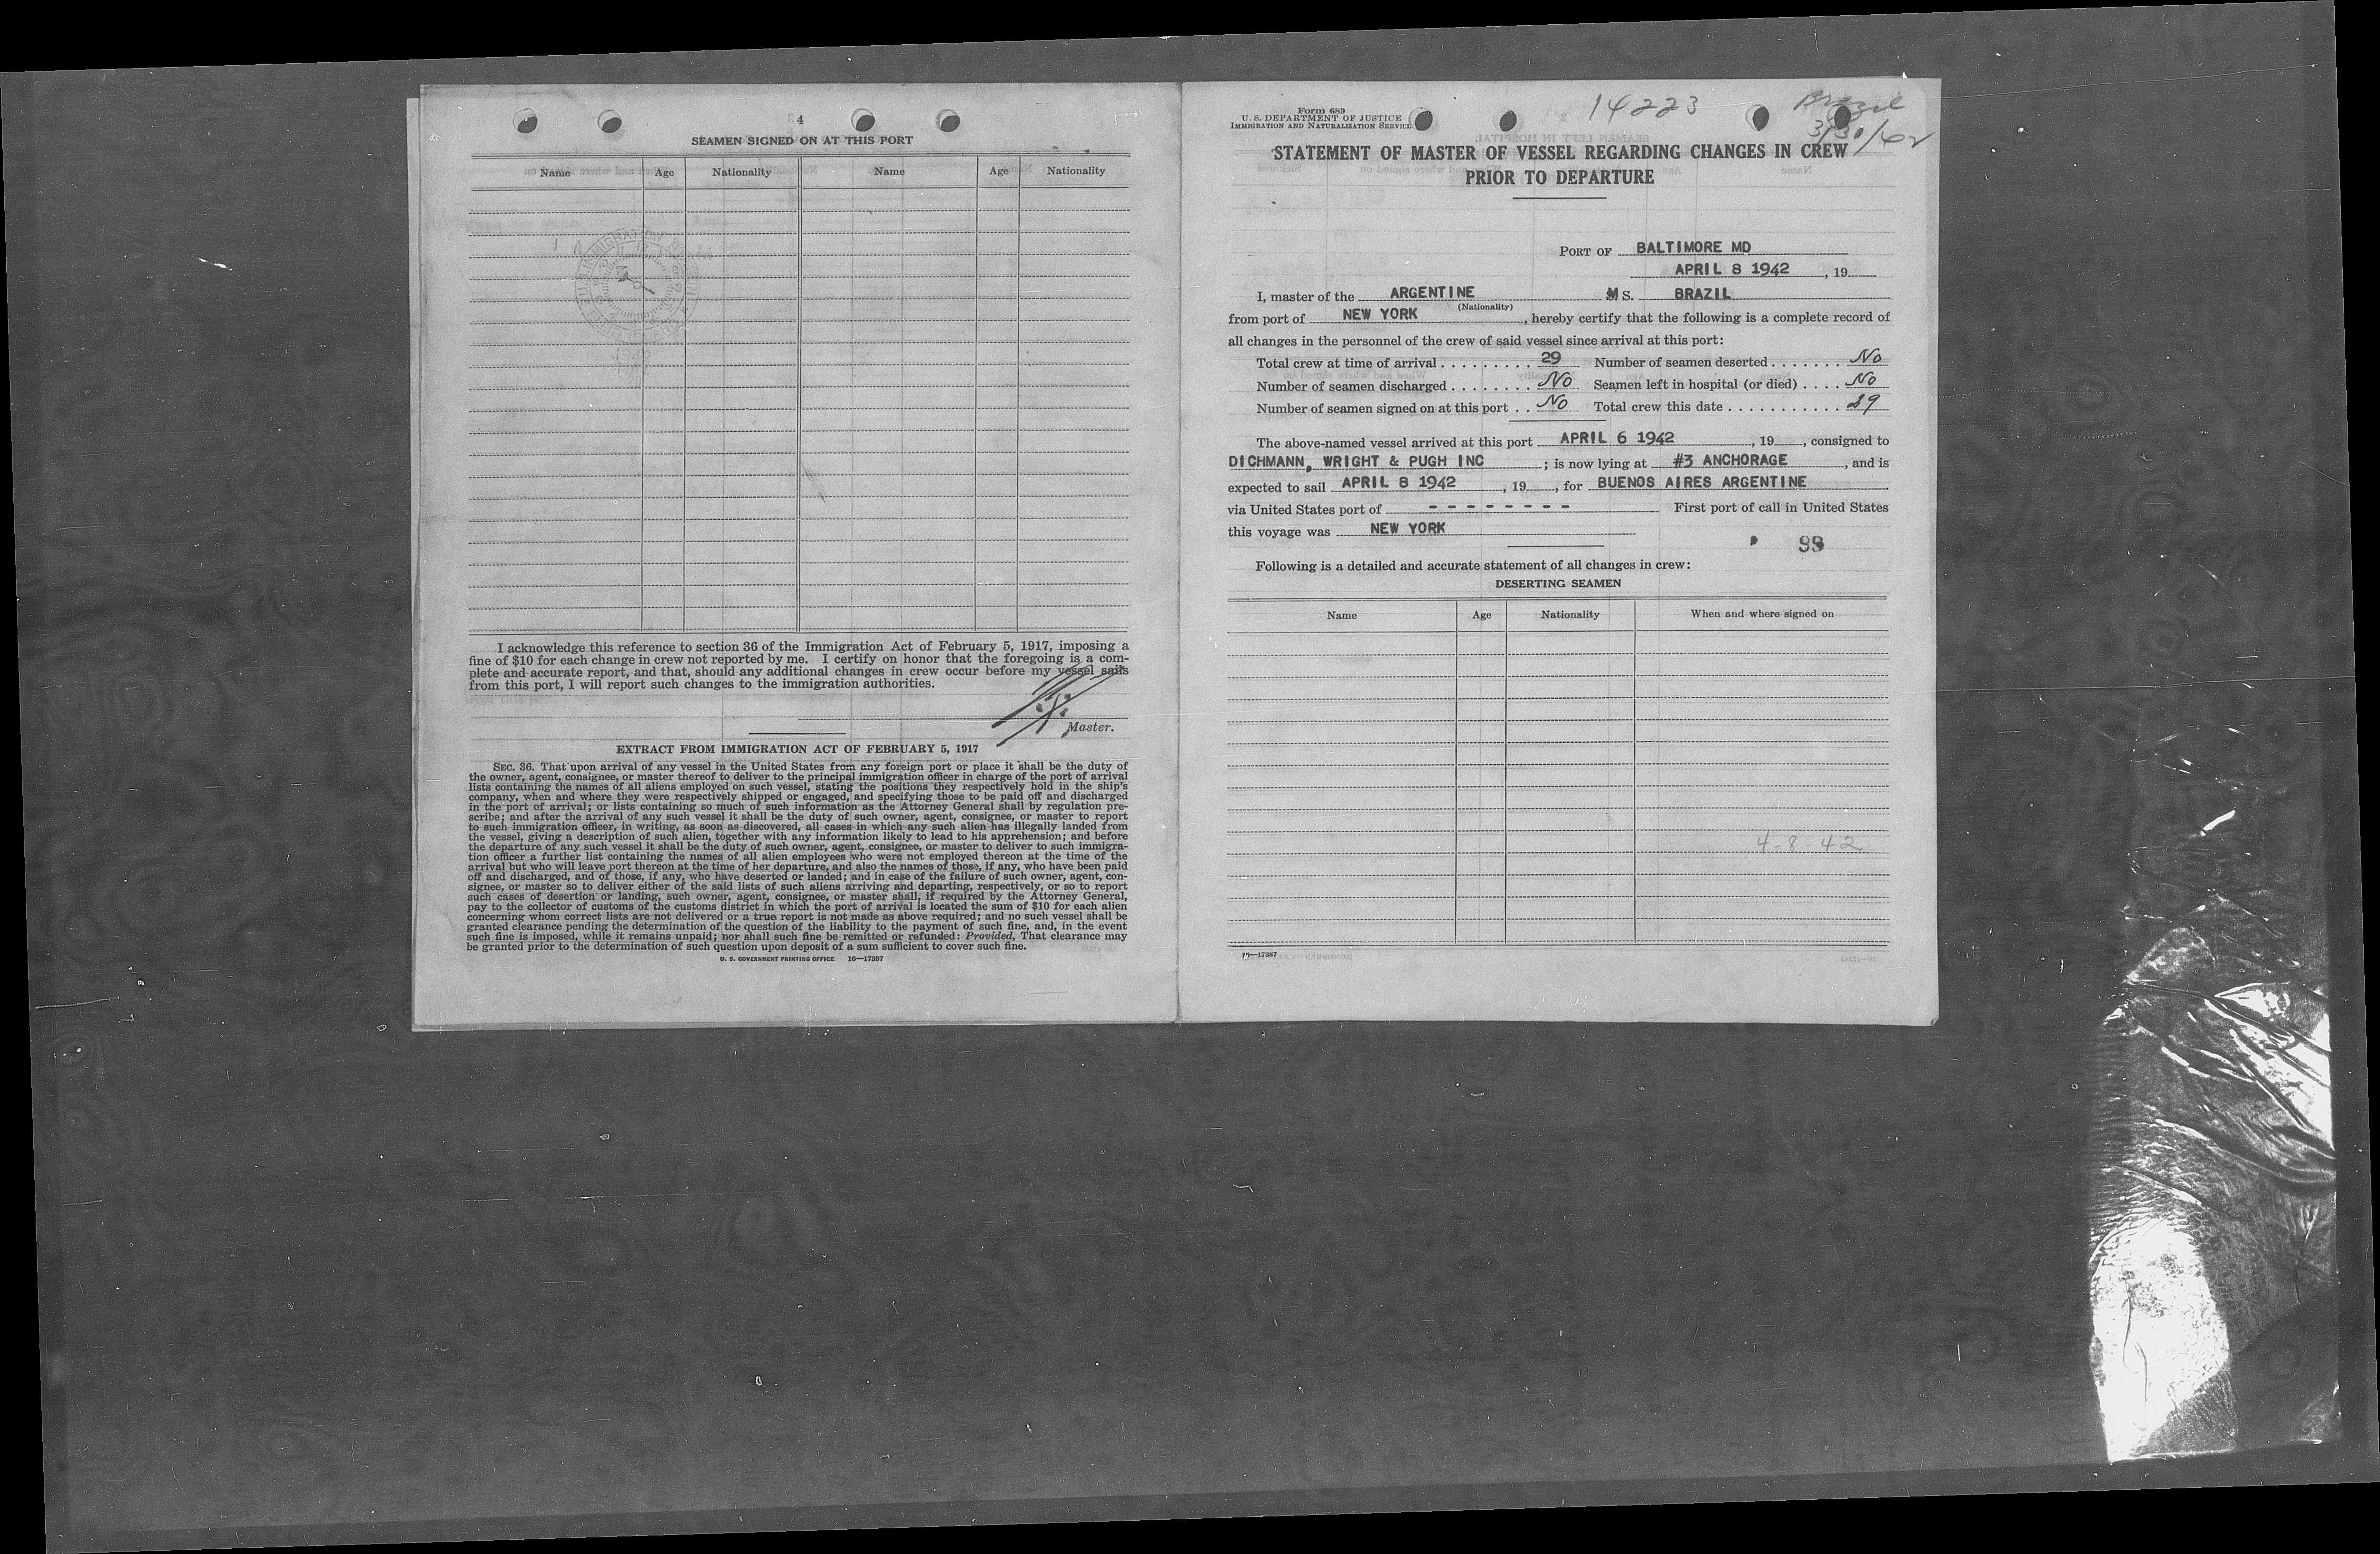 4
SEAMEN SIGNED ON AT THIS PORT
Name Age Nationality Name Age Nationality
I acknowledge this reference to section 36 of the Immigration Act of February 5, 1917, imposing a
fine of $10 for each change in crew not reported by me. I certify on honor that the foregoing is a com-
plete and accurate report, and that, should any additional changes in crew occur before my vessel sails
from this port, I will report such changes to the immigration authorities.
Master.
EXTRACT FROM IMMIGRATION ACT OF FEBRUARY 5, 1917
SEC. 36. That upon arrival of any vessel in the United States from any foreign port or place it shall be the duty of
the owner, agent, consignee, or master thereof to deliver to the principal immigration officer in charge of the port of arrival
lists containing the names of all aliens employed on such vessel, stating the positions they respectively hold in the ship's
company, when and where they were respectively shipped or engaged, and specifying those to be paid off and discharged
in the port of arrival; or lists containing so much of such information as the Attorney General shall by regulation pre-
scribe; and after the arrival of any such vessel it shall be the duty of such owner, agent, consignee, or master to report
to such immigration officer, in writing, as soon as discovered, all cases in which any such alien has illegally landed from
the vessel, giving a description of such alien, together with any information likely to lead to his apprehension; and before
the departure of any such vessel it shall be the duty of such owner, agent, consignee, or master to deliver to such immigra-
tion officer a further list containing the names of all alien employees who were not employed thereon at the time of the
arrival but who will leave port thereon at the time of her departure, and also the names of those, if any, who have been paid
off and discharged, and of those, if any, who have deserted or landed; and in case of the failure of such owner, agent, con-
signee, or master so to deliver either of the said lists of such aliens arriving and departing, respectively, or so to report
such cases of desertion or landing, such owner, agent, consignee, or master shall, if required by the Attorney General,
pay to the collector of customs of the customs district in which the port of arrival is located the sum of $10 for each alien
concerning whom correct lists are not delivered or a true report is not made as above required; and no such vessel shall be
granted clearance pending the determination of the question of the liability to the payment of such fine, and, in the event
such fine is imposed, while it remains unpaid; nor shall such fine be remitted or refunded: Provided, That clearance may
be granted prior to the determination of such question upon deposit of a sum sufficient to cover such fine.
U. S. GOVERNMENT PRINTING OFFICE 16—17387
14223
Brazil
3/30/42
Form 689
U. S. DEPARTMENT OF JUSTICE
IMMIGRATION AND NATURALIZATION SERVICE
STATEMENT OF MASTER OF VESSEL REGARDING CHANGES IN CREW
PRIOR TO DEPARTURE
PORT OF BALTIMORE MD
APRIL 8 1942 , 19
I, master of the ARGENTINE M S. BRAZIL
(Nationality)
from port of NEW YORK , hereby certify that the following is a complete record of
all changes in the personnel of the crew of said vessel since arrival at this port:
Total crew at time of arrival . . . . . . . . . 29 Number of seamen deserted . . . . . . . No
Number of seamen discharged . . . . . . . . No Seamen left in hospital (or died) . . . . No
Number of seamen signed on at this port . . No Total crew this date . . . . . . . . . . . 29
The above-named vessel arrived at this port APRIL 6 1942 , 19 , consigned to
DICHMANN, WRIGHT & PUGH INC ; is now lying at #3 ANCHORAGE , and is
expected to sail APRIL 8 1942 , 19 , for BUENOS AIRES ARGENTINE
via United States port of - - - - - - - - First port of call in United States
this voyage was NEW YORK
Following is a detailed and accurate statement of all changes in crew:
DESERTING SEAMEN
Name Age Nationality When and where signed on
4-8-42